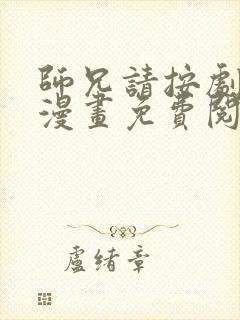 師兄請按劇
漫畫免費閱
盧緒章